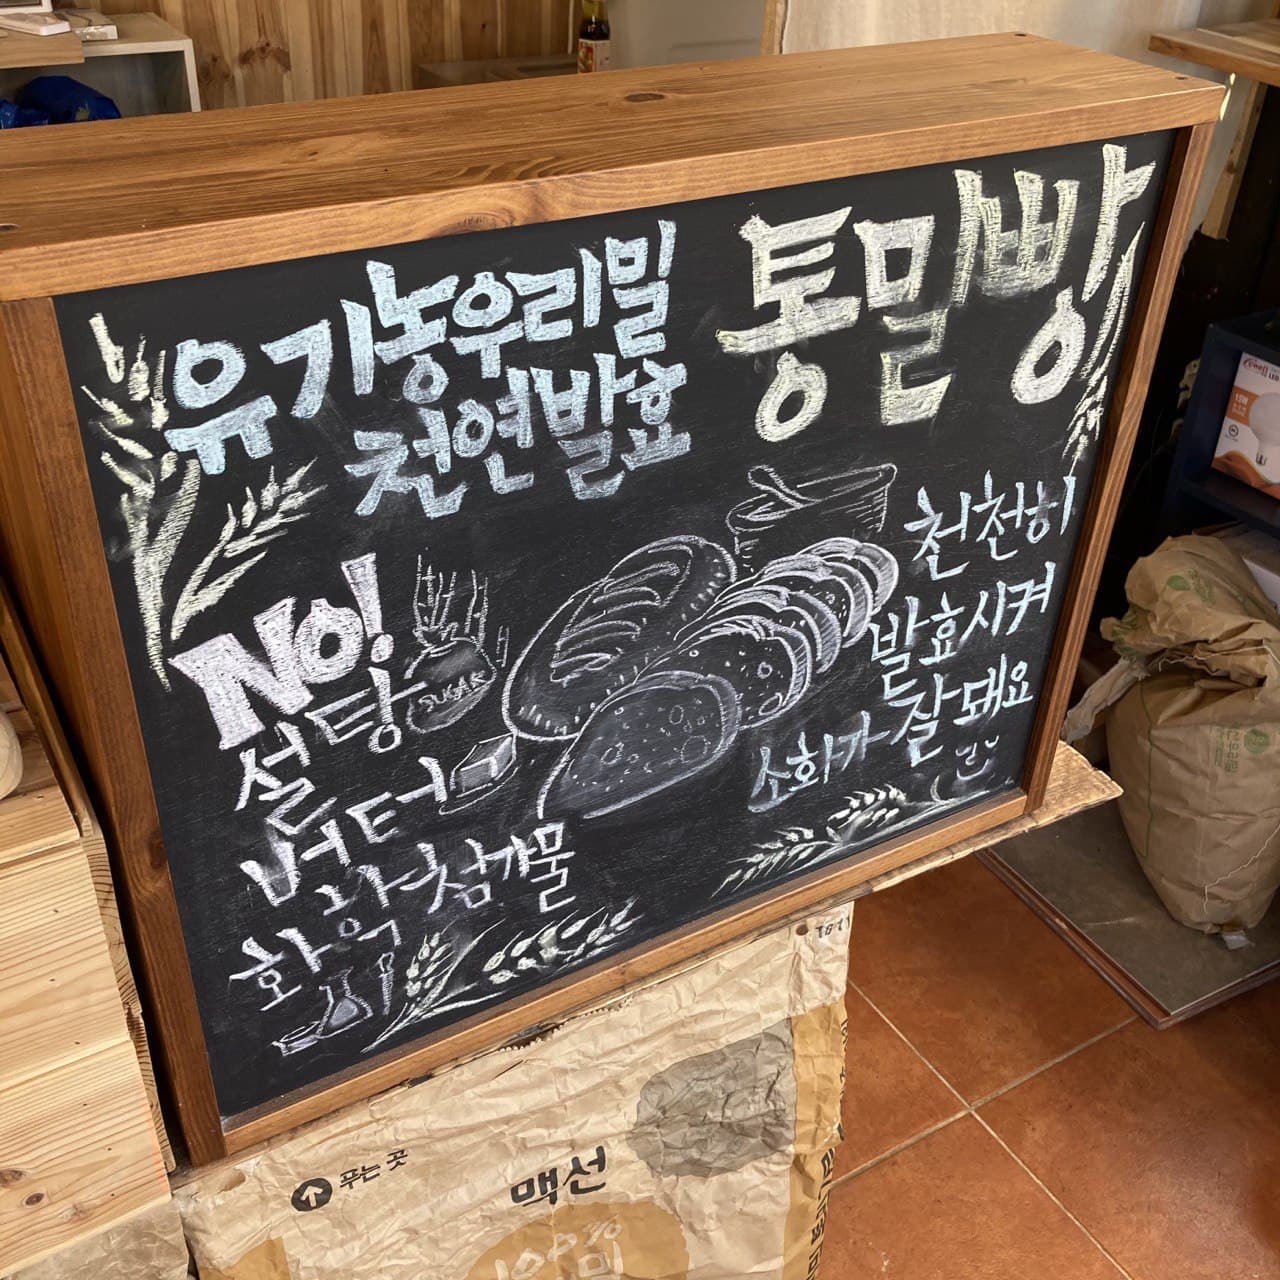 유기농우리밀
천연발효
통밀빵
NO!
설탕
SUGAR
버터
화학첨가물
천천히
발효시켜
소화가 잘 돼요
푸는 곳
맥선
100%
15W